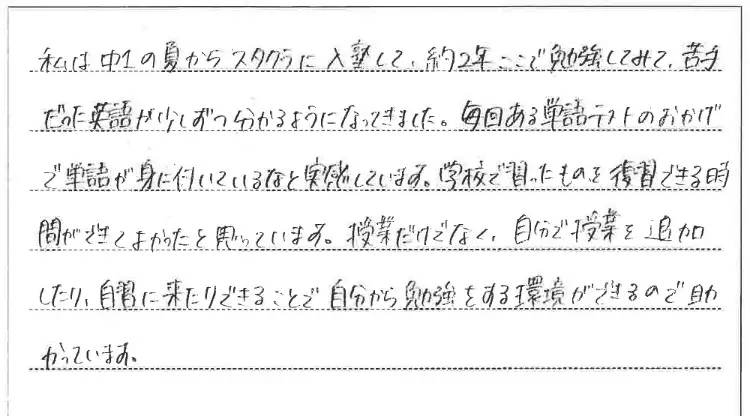 私は中1の夏からスタクラに入塾して、約2年ここで勉強してみて、苦手
だった英語が少しずつ分かるようになってきました。毎回ある単語テストのおかげ
で単語が身に付いているなと実感しています。学校で習ったものを復習できる時
間ができてよかったと思っています。授業だけでなく、自分で授業を追加
したり、自習に来たりできることで自分から勉強をする環境ができるので助
かっています。